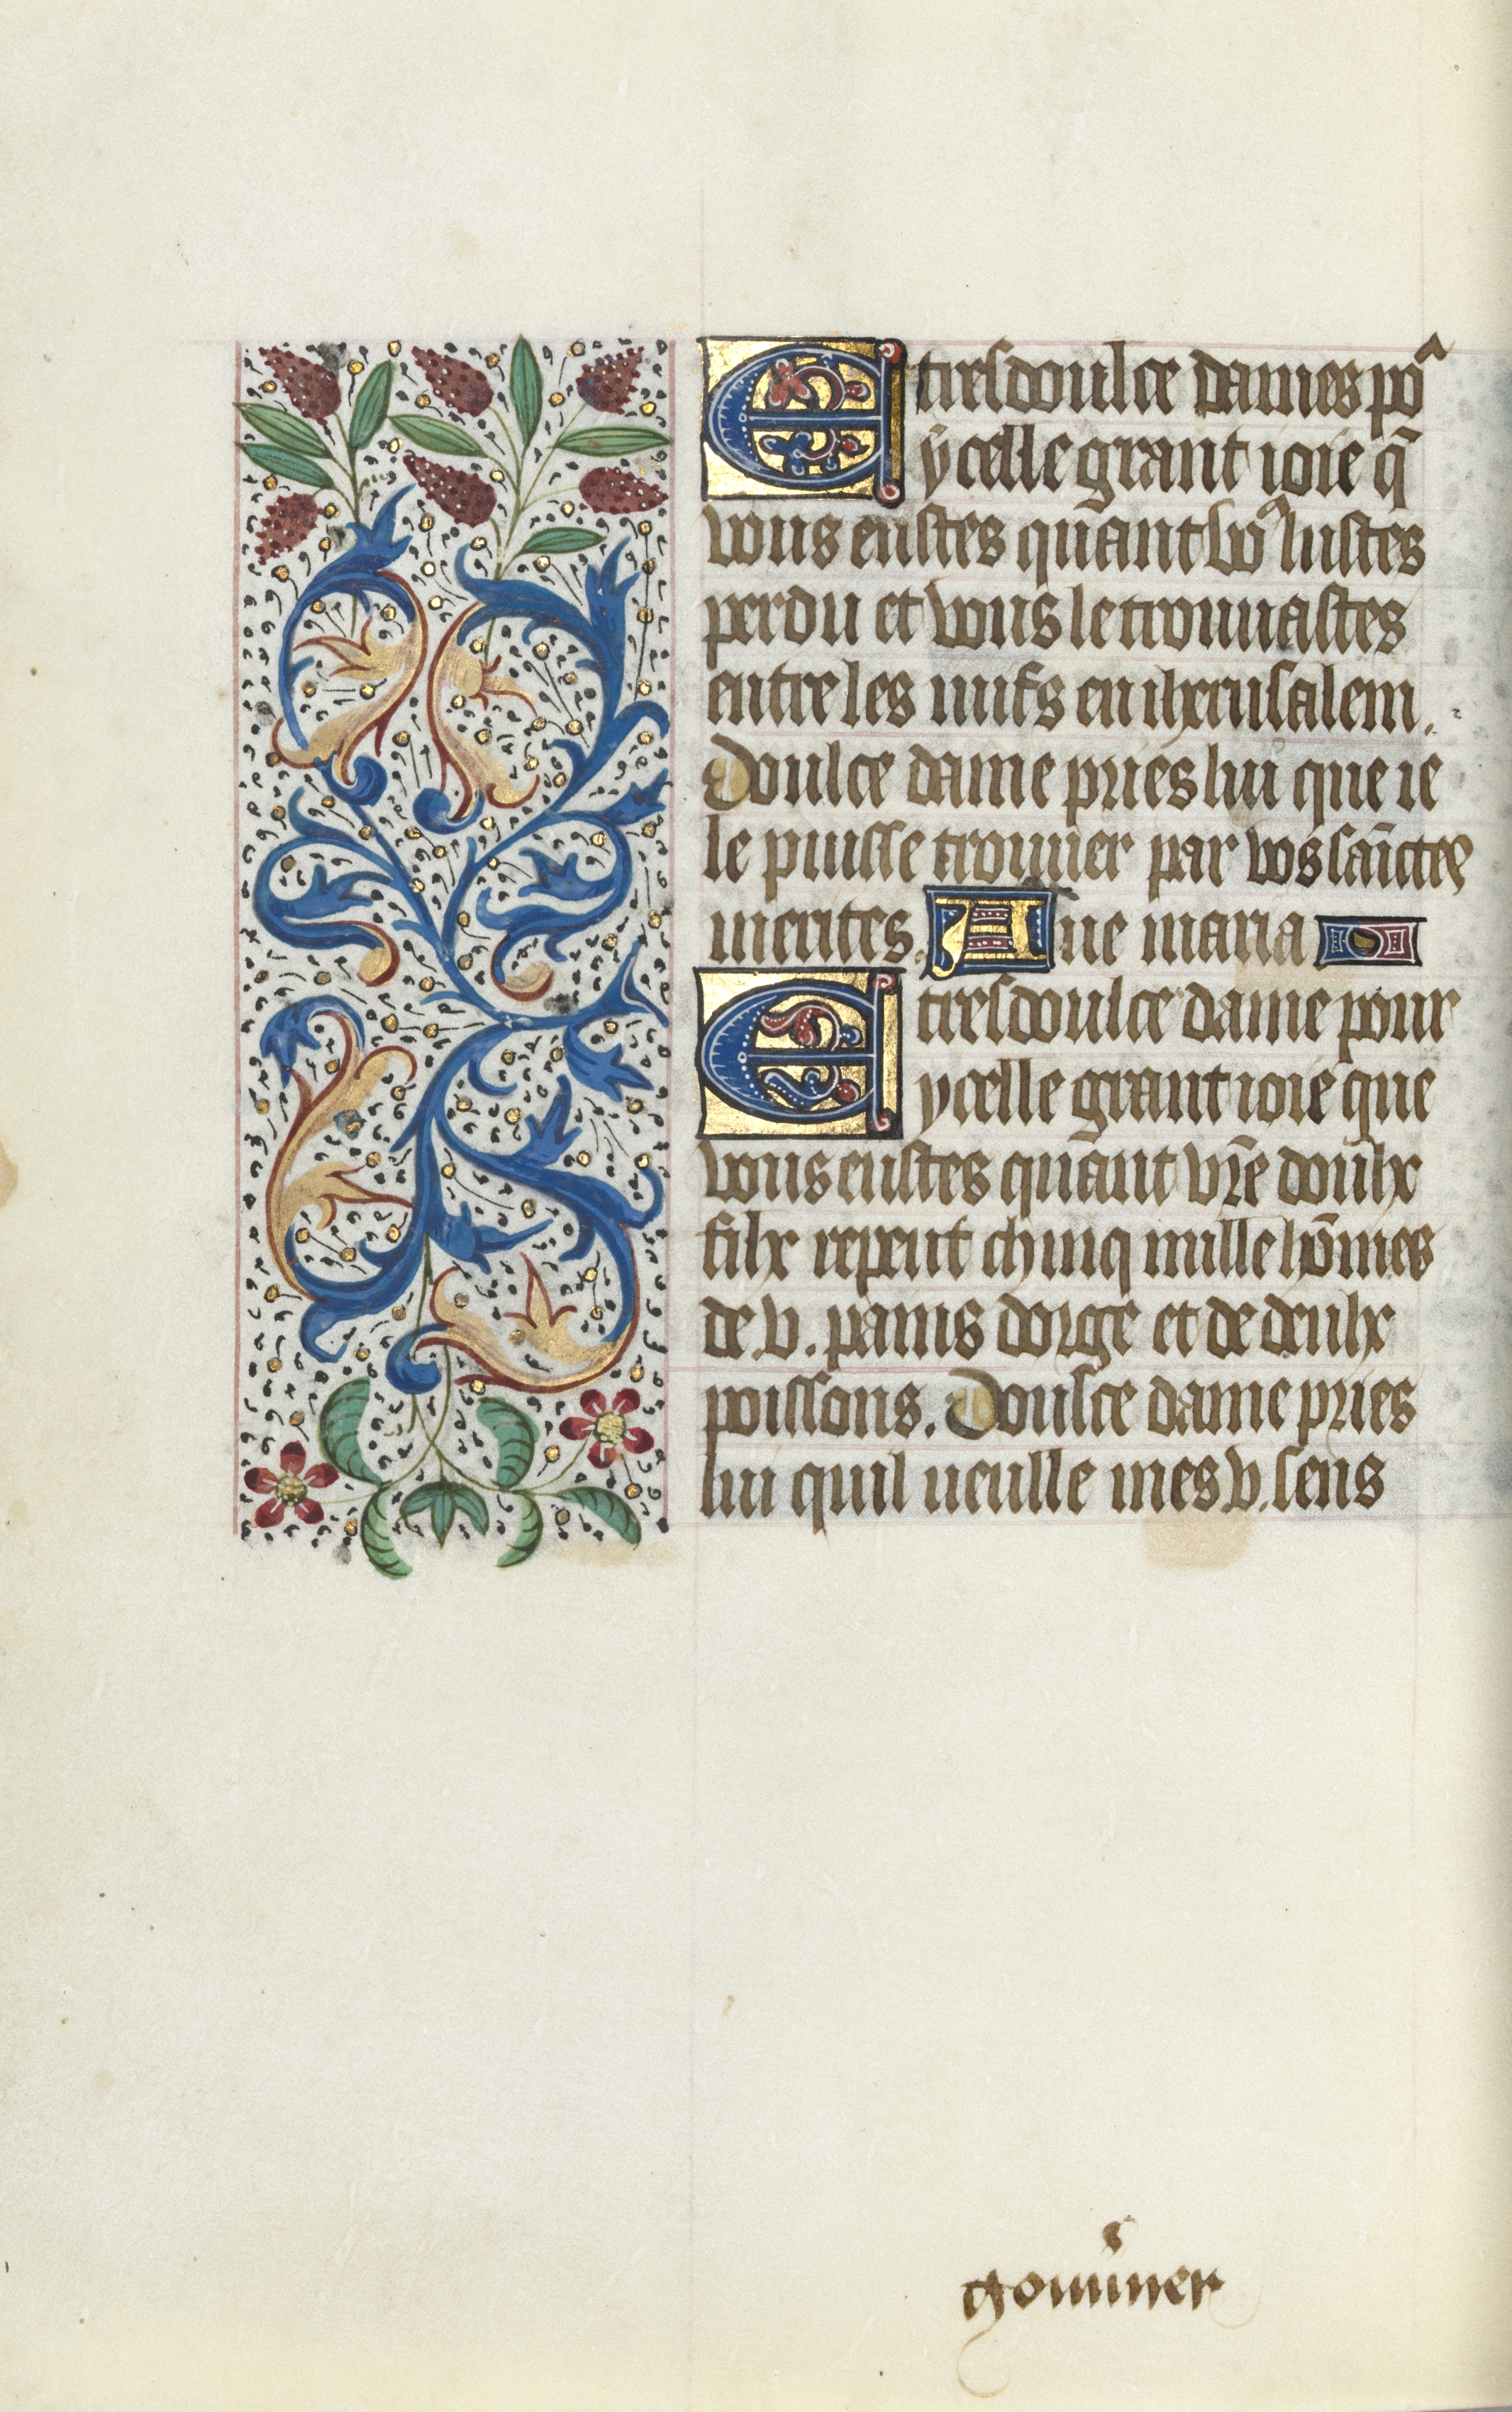 E tresdoulce dames po^
ycelle grant ioie q̄
vous eustes quant vo9 luistes
perdu et vous le trouuastes
entre les iuifs en iherusalem.
Doulce dame pries lui que ie
le puisse trouuer par vos sainctes
merites. Aue maria
E tresdoulce dame pour
ycelle grant ioie que
vous eustes quant vr̄e doulx
filx repeut chinq mille hōmes
de .v. pains dorge et de deulx
poissons. Doulce dame pries
lui quil ueulle mes .v. sens
gouuner